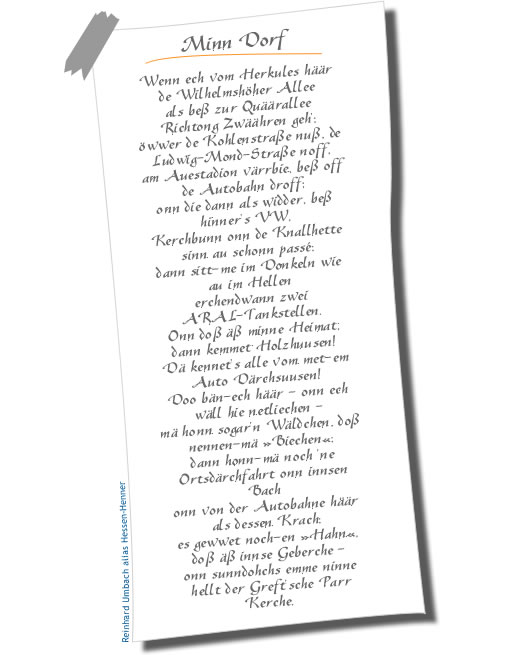 Minn Dorf
Wenn ech vom Herkules häär
de Wilhelmshöher Allee
als beß zur Quäärallee
Richtong Zwäähren geh';
öwwer de Kohlenstraße nuß, de
Ludwig-Mond-Straße noff,
am Auestadion värrbie, beß off
de Autobahn droff;
onn die dann als widder, beß
hinner's VW,
Kerchbunn onn de Knallhette
sinn au schonn passé;
dann sitt-me im Donkeln wie
au im Hellen
erchendwann zwei
ARAL-Tankstellen.
Onn doß äß minne Heimat;
dann kemmet Holzhuusen!
Dä kennet's alle vom met-em
Auto Därchsuusen!
Doo bän-ech häär – onn ech
wäll hie netliechen –
mä honn sogar'n Wäldchen, doß
nennen-mä »Biechen«;
dann honn-mä noch 'ne
Ortsdärchfahrt onn innsen
Bach
onn von der Autobahne häär
als dessen Krach;
es gewwet noch-en »Hahn«,
doß äß innse Geberche –
onn sunndohchs emme ninne
hellt der Greft'sche Parr
Kerche.
Reinhard Umbach alias Hessen-Henner